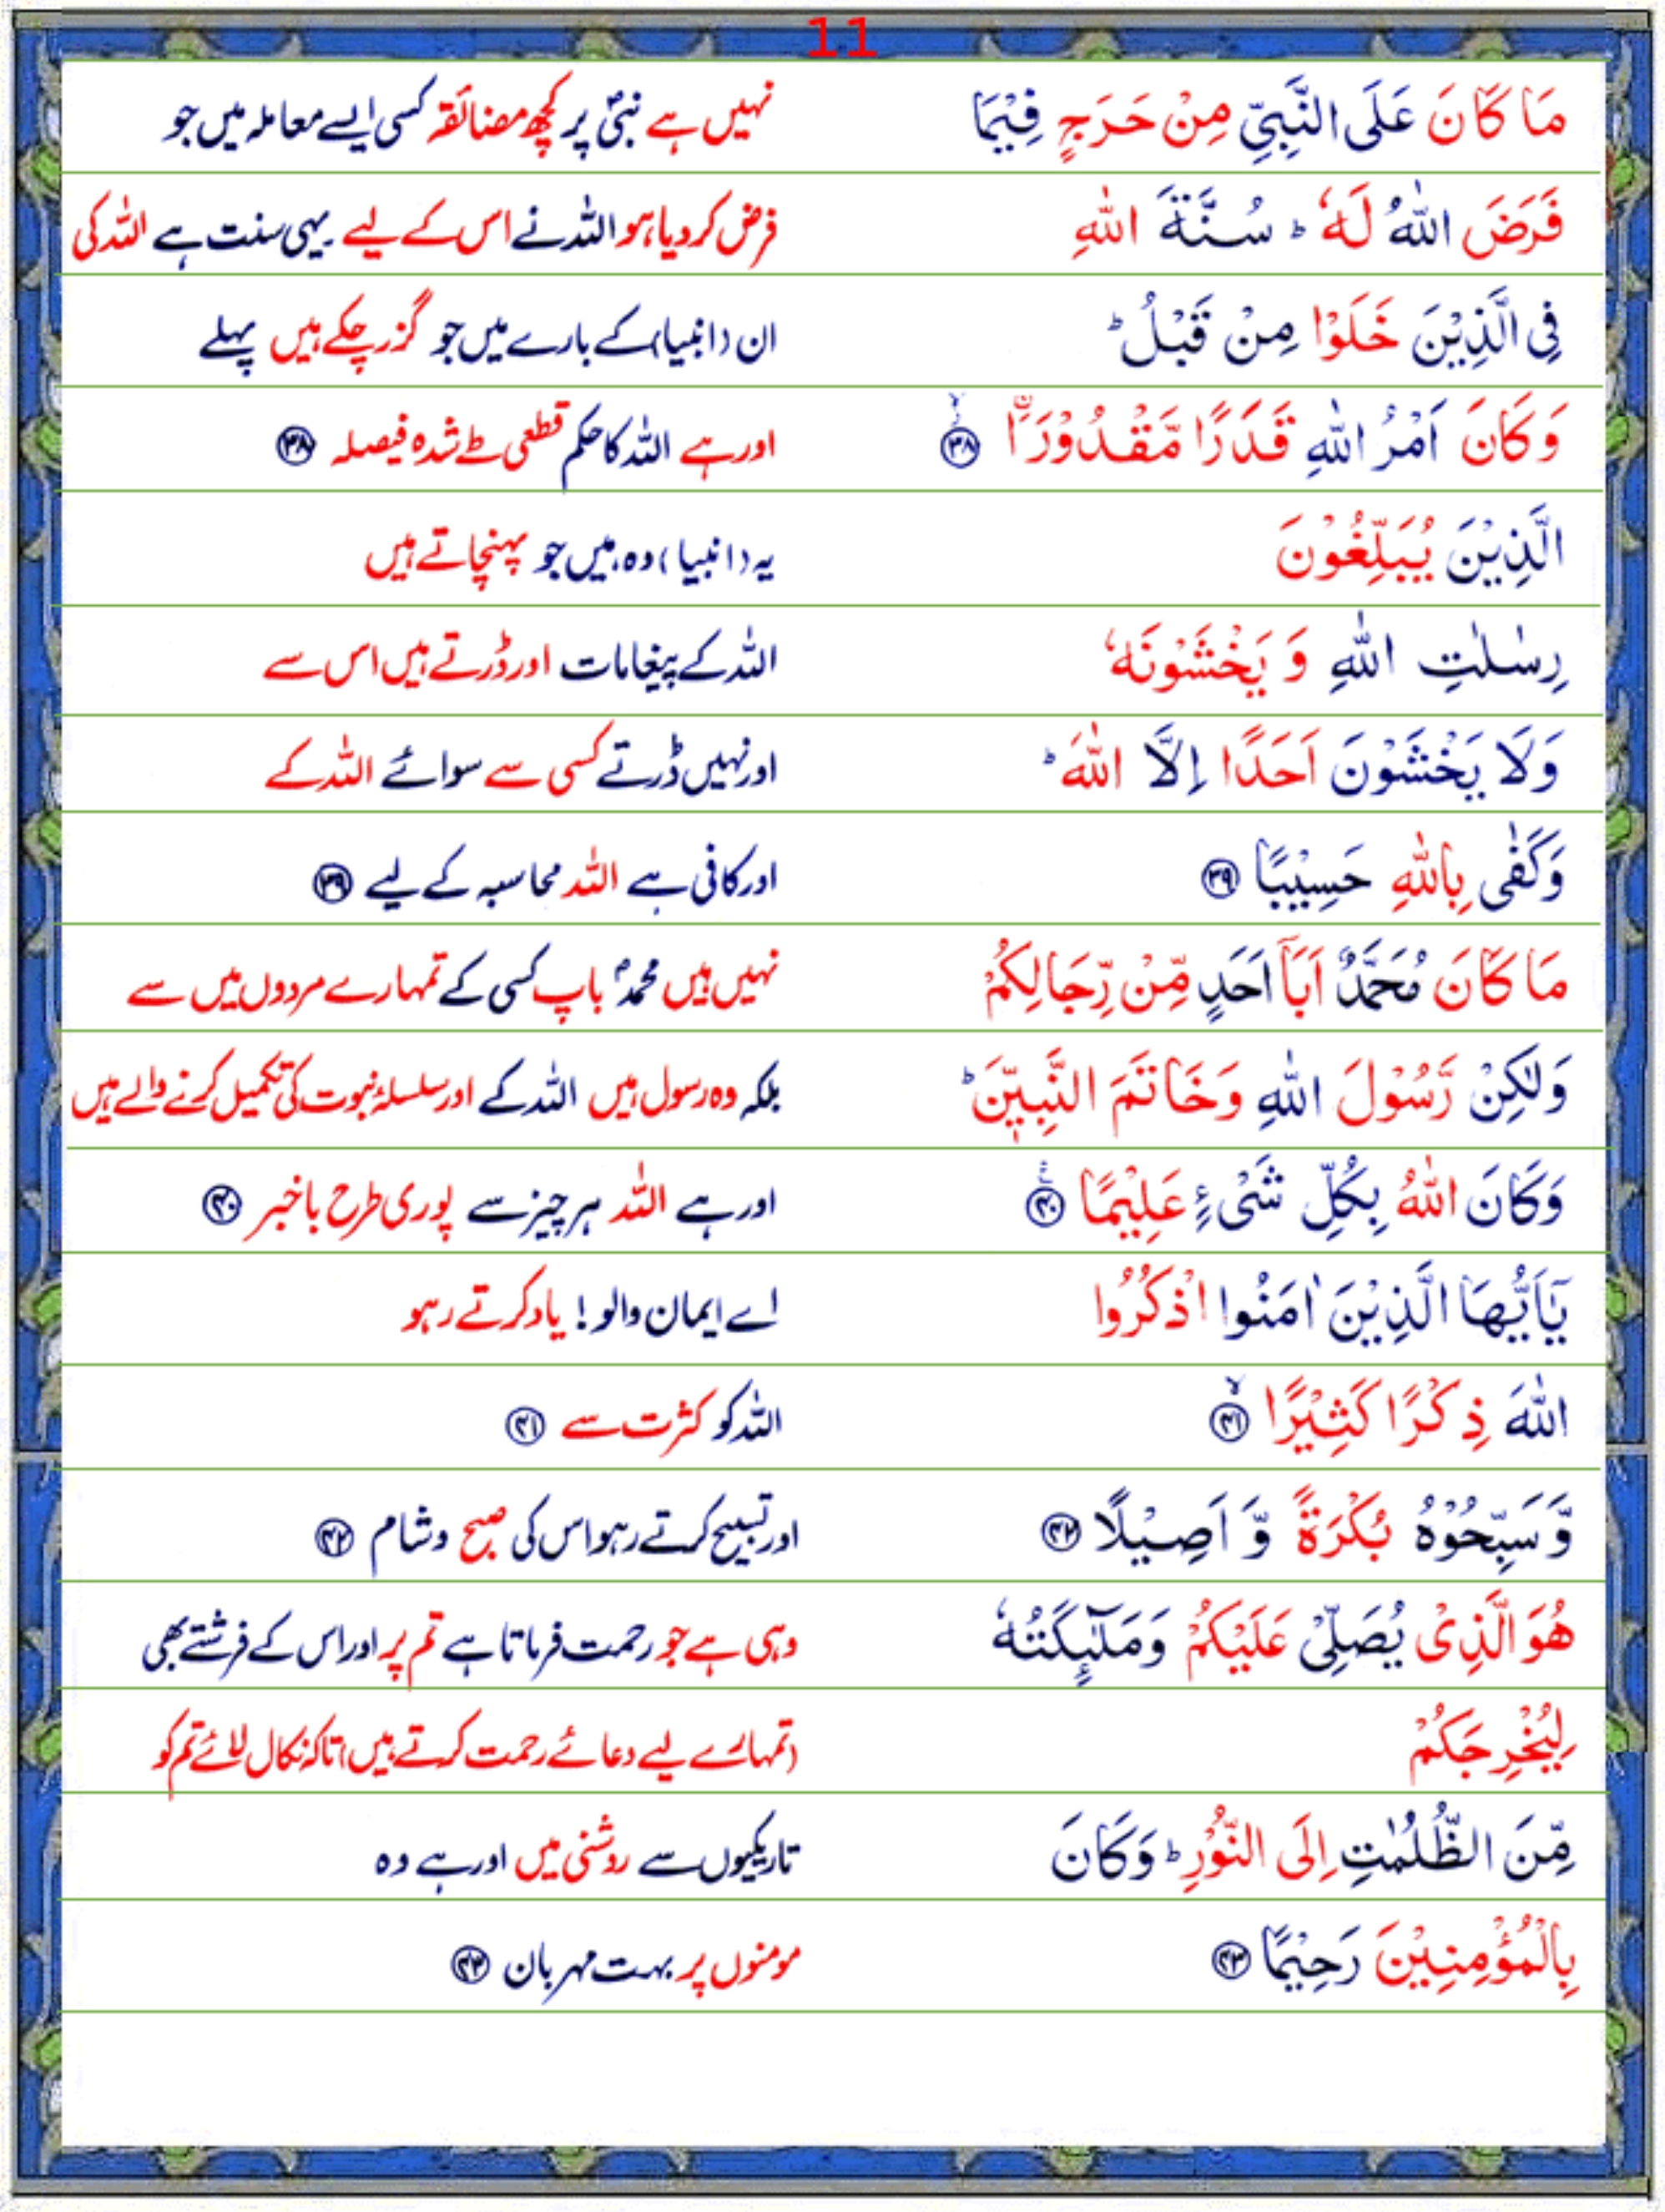 11
مَا كَانَ عَلَى النَّبِيِّ مِنْ حَرَجٍ فِيْمَا نہیں ہے نبیؐ پر کچھ مضائقہ کسی ایسے معاملہ میں جو
فَرَضَ اللّٰهُ لَهٗ ؕ سُنَّةَ اللّٰهِ فرض کر دیا ہو اللہ نے اس کے لیے یہی سنت ہے اللہ کی
فِي الَّذِيْنَ خَلَوْا مِنْ قَبْلُ ؕ ان (انبیا) کے بارے میں جو گزر چکے ہیں پہلے
وَكَانَ اَمْرُ اللّٰهِ قَدَرًا مَّقْدُوْرَا۟ ۙ ﴿۳۸﴾ اور ہے اللہ کا حکم قطعی طے شدہ فیصلہ ﴿۳۸﴾
الَّذِيْنَ يُبَلِّغُوْنَ یہ (انبیا) وہ ہیں جو پہنچاتے ہیں
رِسٰلٰتِ اللّٰهِ وَ يَخْشَوْنَهٗ اللہ کے پیغامات اور ڈرتے ہیں اس سے
وَلَا يَخْشَوْنَ اَحَدًا اِلَّا اللّٰهَ ؕ اور نہیں ڈرتے کسی سے سوائے اللہ کے
وَكَفٰى بِاللّٰهِ حَسِيْبًا ﴿۳۹﴾ اور کافی ہے اللہ محاسبہ کے لیے ﴿۳۹﴾
مَا كَانَ مُحَمَّدٌ اَبَآ اَحَدٍ مِّنْ رِّجَالِكُمْ نہیں ہیں محمدؐ باپ کسی کے تمہارے مردوں میں سے
وَلٰكِنْ رَّسُوْلَ اللّٰهِ وَخَاتَمَ النَّبِيّٖنَ ؕ بلکہ وہ رسول ہیں اللہ کے اور سلسلۂ نبوت کی تکمیل کرنے والے ہیں
وَكَانَ اللّٰهُ بِكُلِّ شَيْءٍ عَلِيْمًا ﴿۴۰﴾ اور ہے اللہ ہر چیز سے پوری طرح باخبر ﴿۴۰﴾
يٰۤاَيُّهَا الَّذِيْنَ اٰمَنُوا اذْكُرُوا اے ایمان والو! یاد کرتے رہو
اللّٰهَ ذِكْرًا كَثِيْرًا ۙ ﴿۴۱﴾ اللہ کو کثرت سے ﴿۴۱﴾
وَّسَبِّحُوْهُ بُكْرَةً وَّ اَصِيْلًا ﴿۴۲﴾ اور تسبیح کرتے رہو اس کی صبح وشام ﴿۴۲﴾
هُوَ الَّذِيْ يُصَلِّيْ عَلَيْكُمْ وَمَلٰٓىِٕكَتُهٗ وہی ہے جو رحمت فرماتا ہے تم پر اور اس کے فرشتے بھی
لِيُخْرِجَكُمْ (تمہارے لیے دعائے رحمت کرتے ہیں) تاکہ نکال لائے تم کو
مِّنَ الظُّلُمٰتِ اِلَى النُّوْرِ ؕ وَكَانَ تاریکیوں سے روشنی میں اور ہے وہ
بِالْمُؤْمِنِيْنَ رَحِيْمًا ﴿۴۳﴾ مومنوں پر بہت مہربان ﴿۴۳﴾